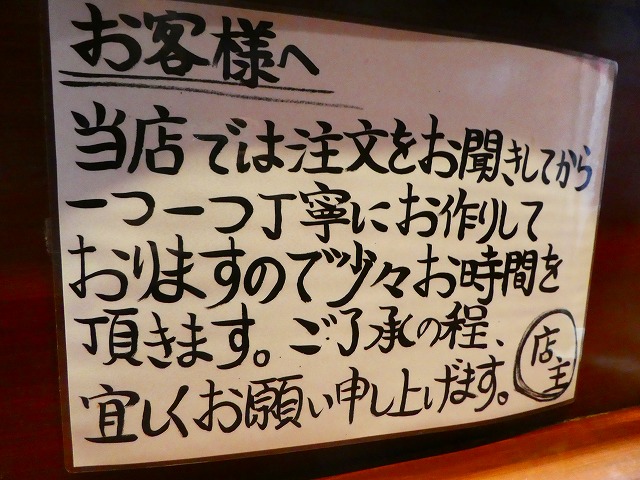 お客様へ
当店では注文をお聞きしてから
一つ一つ丁寧にお作りして
おりますので少々お時間を
頂きます。ご了承の程、
宜しくお願い申し上げます。
店主